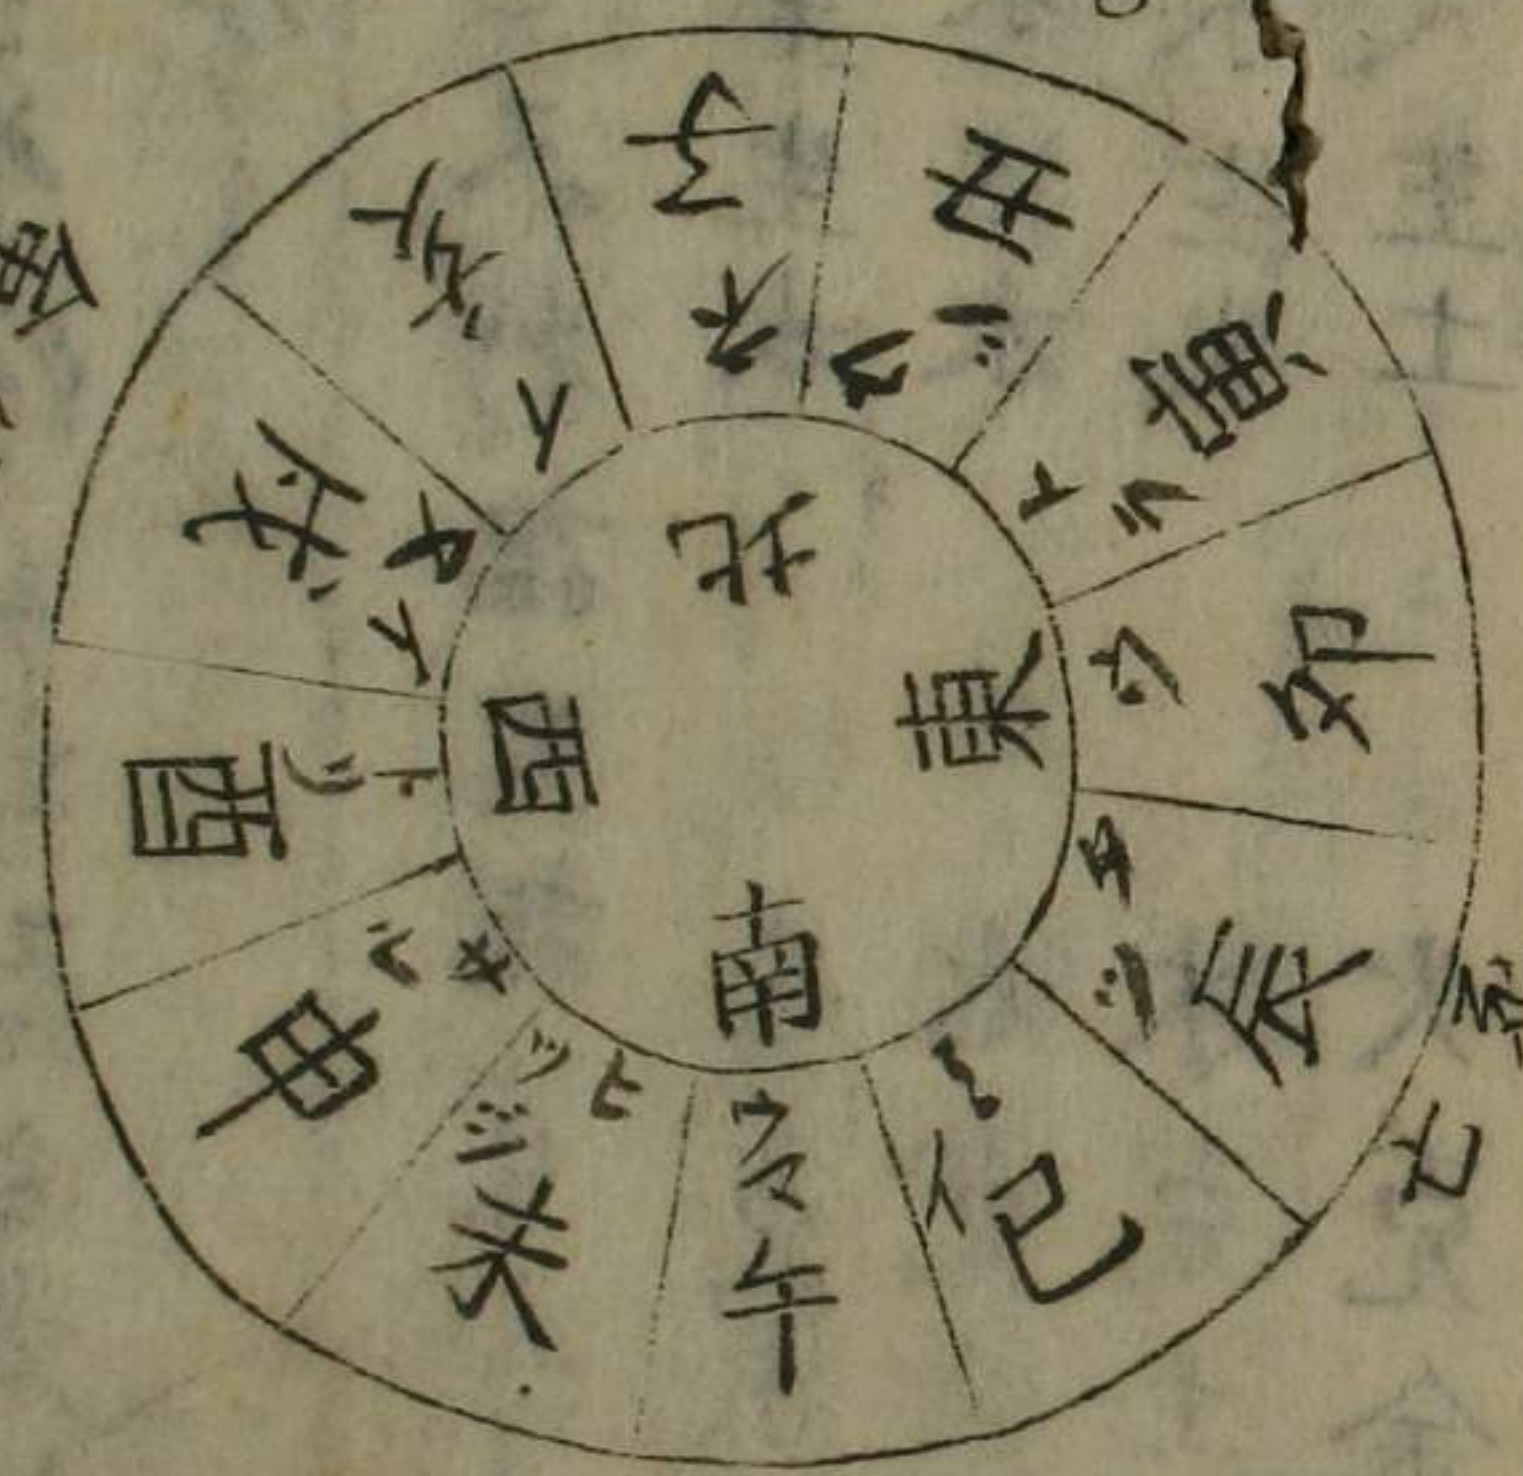 北
東
南
西
子 ネ
丑 ウシ
寅 トラ
卯 ウ
辰 タツ
巳 ミイ
午 ウマ
未 ヒツジ
申 サル
酉 トリ
戌 イヌ
亥 イ